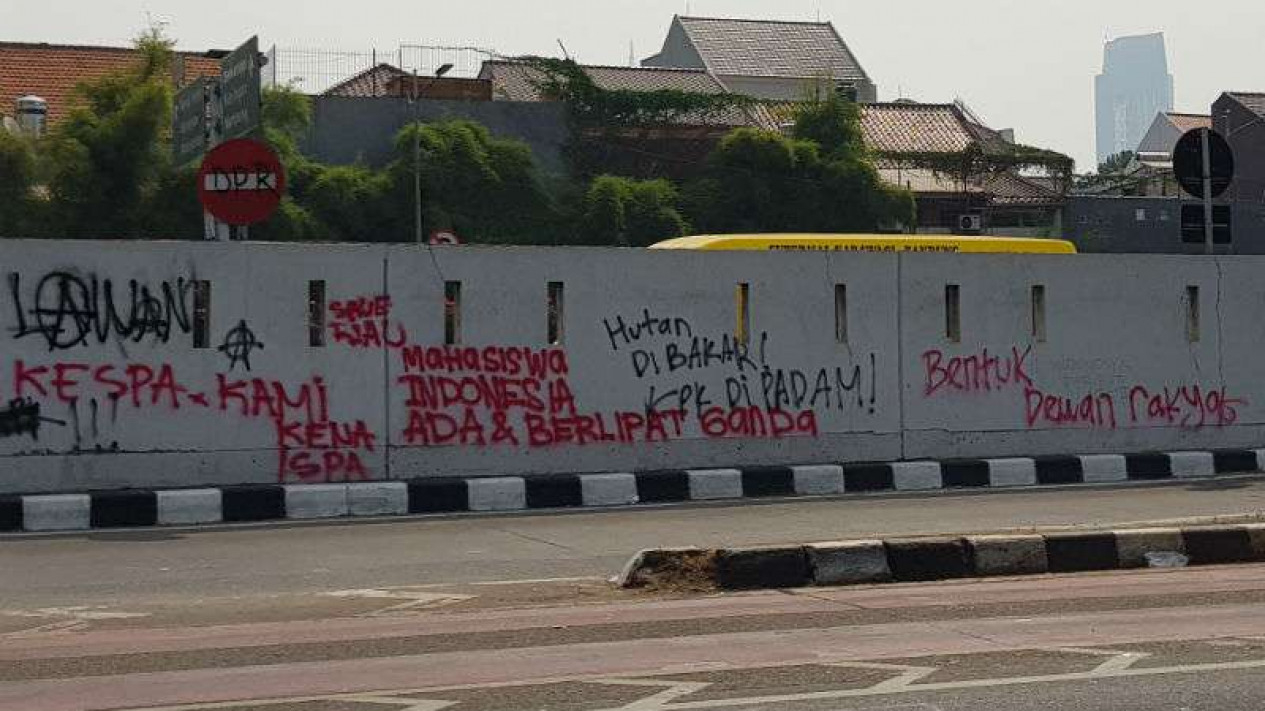 DPR
LAWAN
SAVE
RIAU
KESPA - KAMI
KENA
ISPA
MAHASISWA
INDONESIA
ADA & BERLIPAT GANDA
Hutan
DI BAKAR!
KPK DI PADAM!
Bentuk
Dewan rakyat